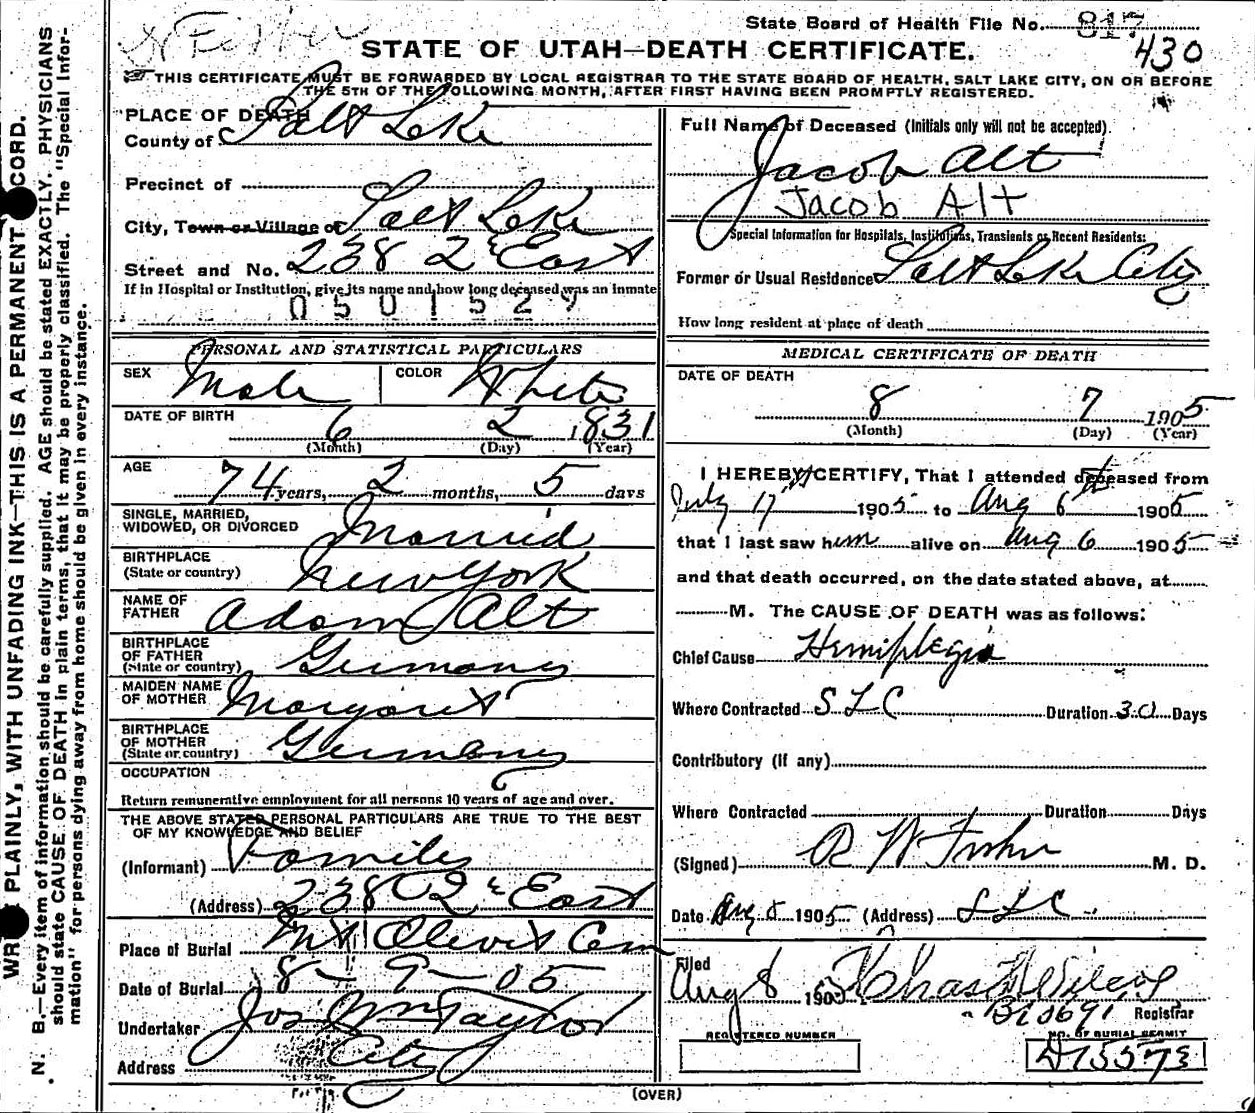 State Board of Health File No. 817
430
STATE OF UTAH—DEATH CERTIFICATE.
THIS CERTIFICATE MUST BE FORWARDED BY LOCAL REGISTRAR TO THE STATE BOARD OF HEALTH, SALT LAKE CITY, ON OR BEFORE
THE 5TH OF THE FOLLOWING MONTH, AFTER FIRST HAVING BEEN PROMPTLY REGISTERED.
PLACE OF DEATH
County of Salt Lake
Precinct of
City, Town or Village of Salt Lake
Street and No. 238 2d East
If in Hospital or Institution, give its name and how long deceased was an inmate
0501529
PERSONAL AND STATISTICAL PARTICULARS
SEX Male COLOR White
DATE OF BIRTH 6 2 1831
(Month) (Day) (Year)
AGE 74 years, 2 months, 5 days
SINGLE, MARRIED,
WIDOWED, OR DIVORCED Married
BIRTHPLACE
(State or country) New York
NAME OF
FATHER Adam Alt
BIRTHPLACE
OF FATHER
(State or country) Germany
MAIDEN NAME
OF MOTHER Margaret
BIRTHPLACE
OF MOTHER
(State or country) Germany
OCCUPATION
Return remunerative employment for all persons 10 years of age and over.
THE ABOVE STATED PERSONAL PARTICULARS ARE TRUE TO THE BEST
OF MY KNOWLEDGE AND BELIEF
(Informant) Family
(Address) 238 2d East
Place of Burial Mt Olivet Cem
Date of Burial 8-9-05
Undertaker Jos Wm Taylor
Address City
Full Name of Deceased (Initials only will not be accepted).
Jacob Alt
Jacob Alt
Special Information for Hospitals, Institutions, Transients or Recent Residents:
Former or Usual Residence Salt Lake City
How long resident at place of death
MEDICAL CERTIFICATE OF DEATH
DATE OF DEATH
8 7 1905
(Month) (Day) (Year)
I HEREBY CERTIFY, That I attended deceased from
July 17 1905 to Aug 6th 1905
that I last saw him alive on Aug 6 1905
and that death occurred, on the date stated above, at
M. The CAUSE OF DEATH was as follows:
Chief Cause Hemiplegia
Where Contracted SLC Duration 30 Days
Contributory (if any)
Where Contracted Duration Days
(Signed) R W Fisher M. D.
Date Aug 8 1905 (Address) SLC.
Filed
Aug 8 1905 Chas Wilcox
Registrar
REGISTERED NUMBER NO. OF BURIAL PERMIT
D15573
(OVER)
WRITE PLAINLY, WITH UNFADING INK—THIS IS A PERMANENT RECORD.
N. B.—Every item of information should be carefully supplied. AGE should be stated EXACTLY. PHYSICIANS
should state CAUSE OF DEATH in plain terms, that it may be properly classified. The "Special Infor-
mation" for persons dying away from home should be given in every instance.